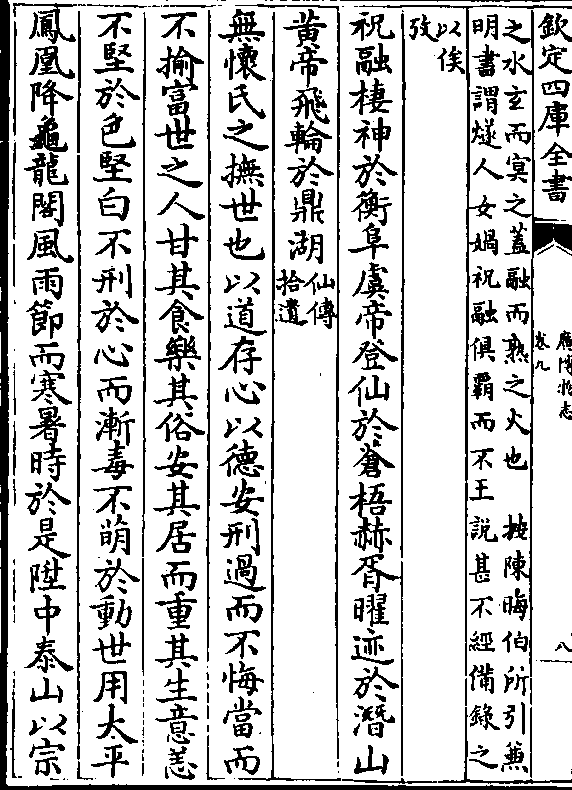 欽定四庫全書
廣博物志
卷九
八
之水玄而㝠之蓋融而熟之火也 按陳晦伯所引蕪
明書謂燧人女媧祝融俱霸而不王 說甚不經備錄之
以俟
攷
祝融棲神於衡阜虞帝登仙於蒼梧赫胥曜迹於潛山
黃帝飛輪於鼎湖仙傳
拾遺
無懷氏之撫世也以道存心以德安刑過而不悔當而
不揄富世之人甘其食樂其俗安其居而重其生意恙
不堅於色堅白不刑於心而漸毒不萌於動世用太平
鳳凰降龜龍閣風雨節而寒暑時於是陞中泰山以宗